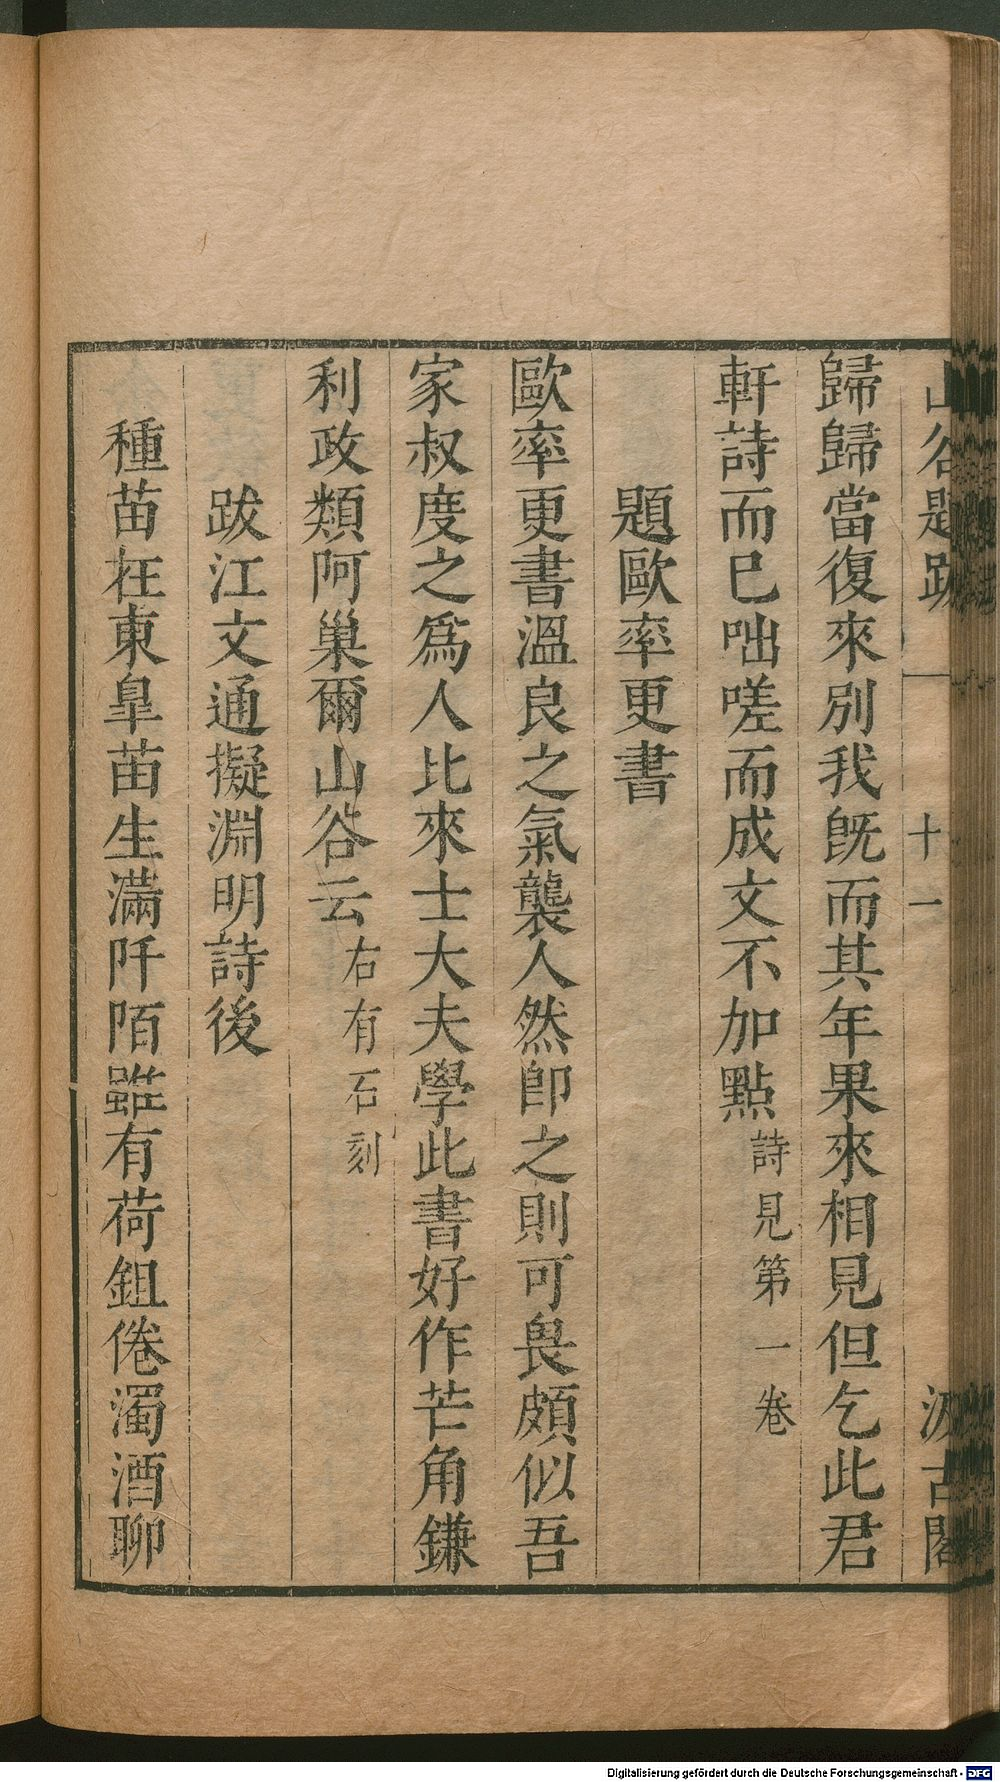 山谷題跋 一 十一 汲古閣
歸歸當復來別我既而其年果來相見但乞此君
軒詩而已咄嗟而成文不加點詩見第一卷
題歐率更書
歐率更書溫良之氣襲人然卽之則可畏頗似吾
家叔度之爲人比來士大夫學此書好作芒角鎌
利政類阿巢爾山谷云右有石刻
跋江文通擬淵明詩後
種苗在東皐苗生滿阡陌雖有荷鉏倦濁酒聊
Digitalisierung gefördert durch die Deutsche Forschungsgemeinschaft - DFG